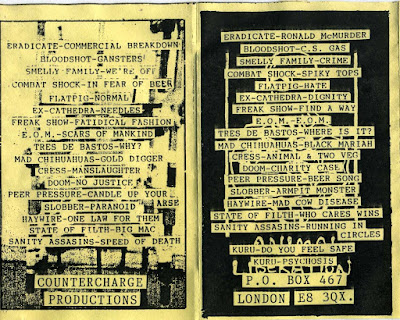 ERADICATE-COMMERCIAL BREAKDOWN
BLOODSHOT-GANSTERS
SMELLY FAMILY-WE'RE OFF
COMBAT SHOCK-IN FEAR OF BEER
FLATPIG-NORMAL
EX-CATHEDRA-NEEDLES
FREAK SHOW-FATIDICAL FASHION
E.O.M.-SCARS OF MANKIND
TRES DE BASTOS-WHY?
MAD CHIHUAHUAS-GOLD DIGGER
CRESS-MANSLAUGHTER
DOOM-NO JUSTICE
PEER PRESSURE-CANDLE UP YOUR
ARSE
SLOBBER-PARANOID
HAYWIRE-ONE LAW FOR THEM
STATE OF FILTH-BIG MAC
SANITY ASSASINS-SPEED OF DEATH
COUNTERCHARGE
PRODUCTIONS
ERADICATE-RONALD McMURDER
BLOODSHOT-C.S. GAS
SMELLY FAMILY-CRIME
COMBAT SHOCK-SPIKY TOPS
FLATPIG-HATE
EX-CATHEDRA-DIGNITY
FREAK SHOW-FIND A WAY
E.O.M.-E.O.M.
TRES DE BASTOS-WHERE IS IT?
MAD CHIHUAHUAS-BLACK MARIAH
CRESS-ANIMAL & TWO VEG
DOOM-CHARITY CASE
PEER PRESSURE-BEER SONG
SLOBBER-ARMPIT MONSTER
HAYWIRE-MAD COW DISEASE
STATE OF FILTH-WHO CARES WINS
SANITY ASSASINS-RUNNING IN
CIRCLES
ANIMAL
KURU-DO YOU FEEL SAFE
LIBERATION
KURU-PSYCHOSIS
P.O. BOX 467
LONDON E8 3QX.